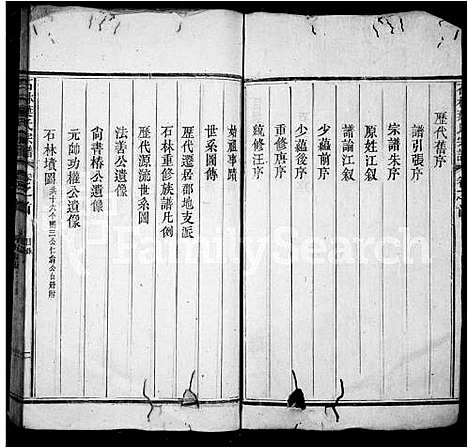 歷代舊序
譜引張序
宗譜朱序
原姓江序
譜論江序
少蘊前序
少蘊後序
重修唐序
統修汪序
始祖事蹟
世系傳
世系圖
歷代遷居郡地支派
石林重修族譜凡例
歷代源流世系圖
法善公遺像
尚書椿公遺像
元帥功權公遺像
石林墳圖
FamilySearch